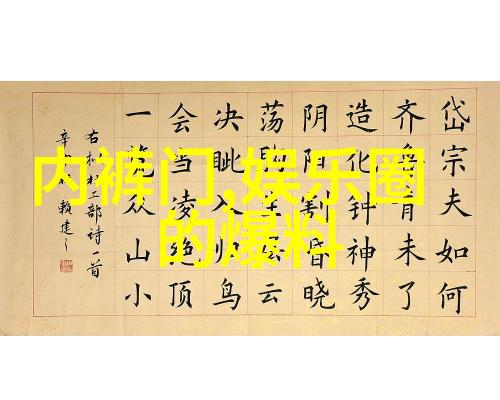 内裤门,娱乐圈
的爆料
岱宗夫如何
齐青未了
造化钟神秀
阴阳割昏晓
荡云
决眦入归鸟
会当凌绝顶
一览众山小
右杜工部诗一首
辛赖建